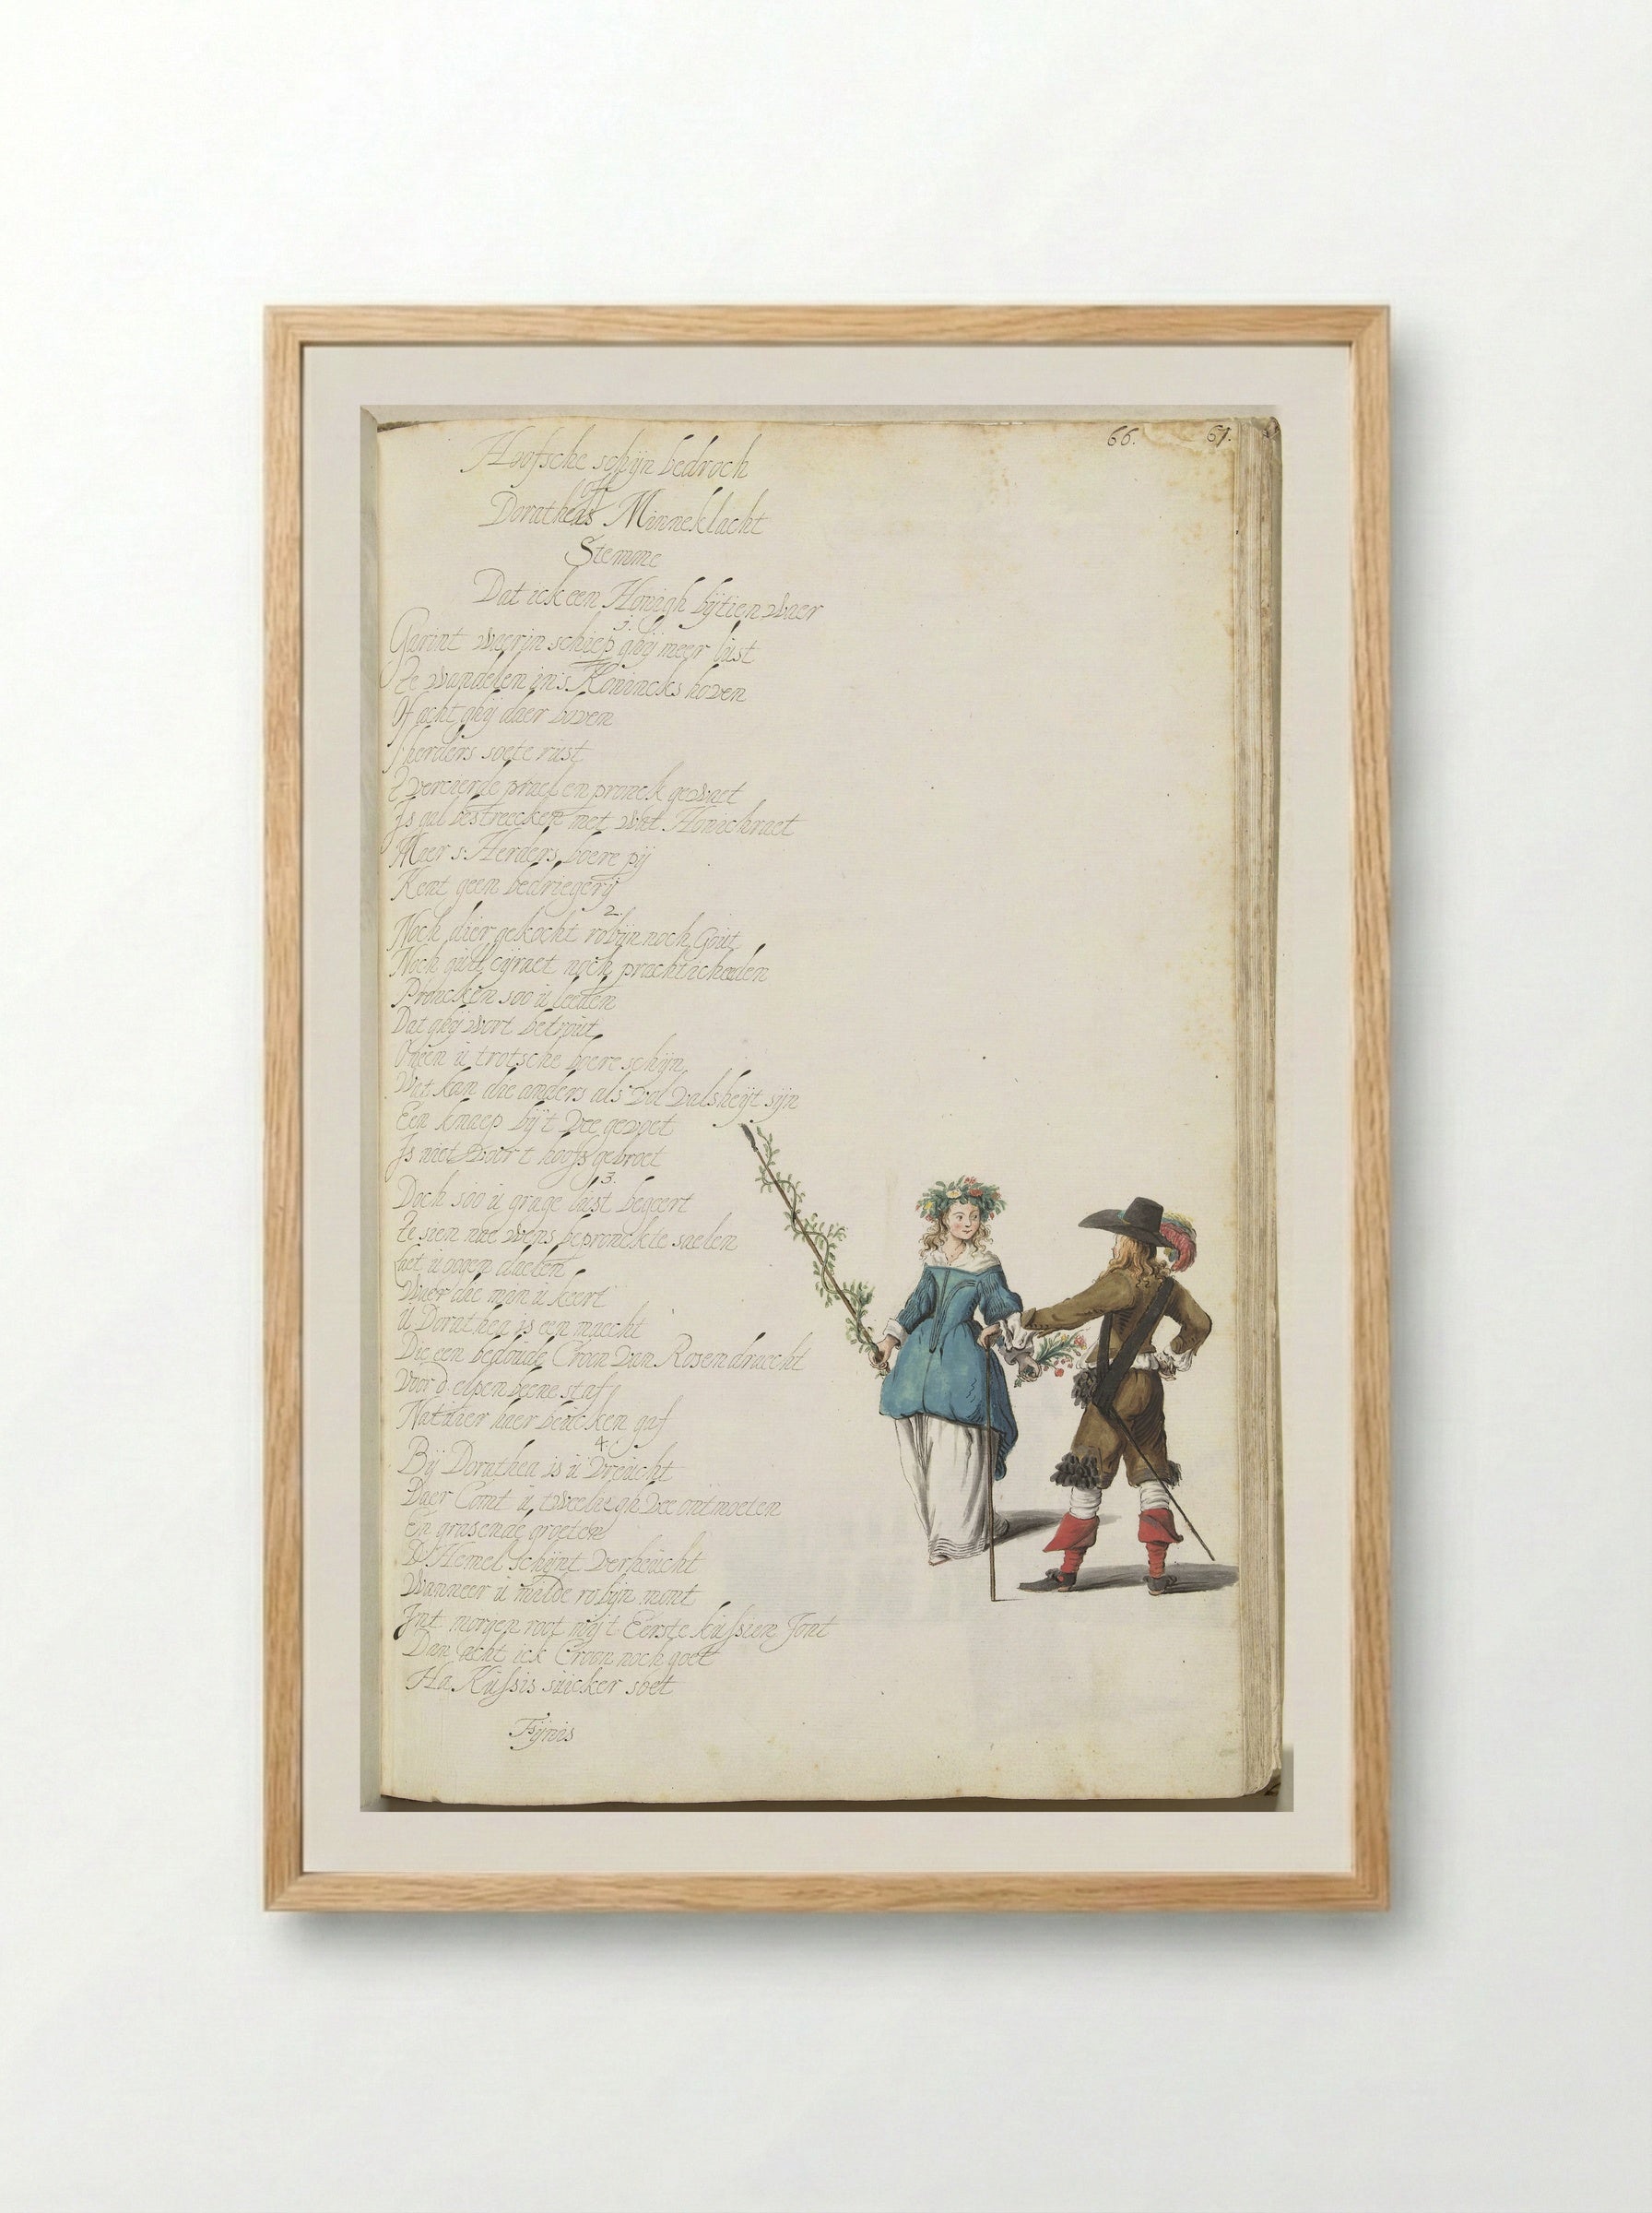 66. 67.
Hoofsche schijn bedroch
off
Doratheas Minneklacht
Stemme
Dat ick een Honigh bijtien waer
Garint waerin schiep ghij meer lust
Te wandelen in's Konincks hoven
Of acht ghij daer boven
s'herders soete rust
t vercierde prael en pronck gewaet
Is gal bestreecken met wat Honichraet
Maer s: Herders boere pij
Kent geen bedriegerij
2.
Noch dier gekocht robijn noch Gout
Noch gult cijraet noch pracht
Proncken soo u leeden
Dat ghij wort betrout
u trotsche boere schijn
Wat kan die anders als vol valsheijt sijn
Een knaep bij't vee gevoet
Is niet voor t hoofs gebroet
3.
Doch soo u grage lust begeert
Te sien nae wens bepronckte saelen
Laet u oogen daelen
Waer die min u keert
U Dorathea is een maecht
Die een bedoude Croon van Rosen draecht
Voor d elpenbeene staf
Natuer haer beucken gaf
4.
Bij Dorathea is u vreucht
Daer Comt u tweeligh vee ontmoeten
En grasende groeten
D'Hemel schijnt verheucht
Wanneer u malde robijn mont
Int morgen root mij t Eerste kussien Jont
Dan acht ick Croon noch goet
Ha Kussis suicker soet
Fijnis